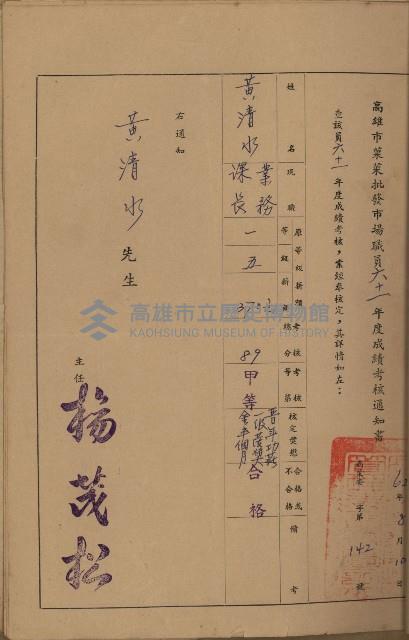 高雄市菓菜批發市場職員六十一年度成績考核通知書
62年8月10日
字第142號
查該員六十一年度成績考核,業經奉核定,其詳情如左:
姓名
現職
原等級薪額
等級薪
考核總分
考核等第
核定獎懲
合格或不合格
備考
黃清水
業務課長
一
五
370
89
甲等
晉年功薪一級
合格
右通知
黃清水先生
主任
楊茂松
高雄市立歷史博物館
KAOHSIUNG MUSEUM OF HISTORY